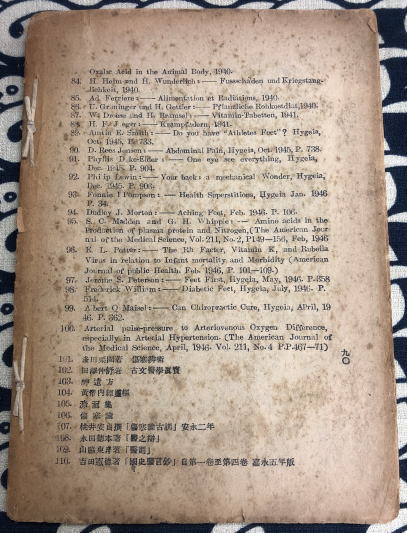 Oxalic Acid in the Animal Body, 1940.
84. H. Hohn und H. Wunderlich:—— Fussschäden und Kriegstaug-
lichkeit, 1940.
85. Ad. Ferriere:—— Alimentation et Radiations, 1940.
86. U. Graninger und H. Gettler:—— Pflanzliche Rohkostdiät, 1940.
87. W. Droese and H. Bramsel:—— Vitamin-Tabetten, 1941.
88. H. Jäger:—— Krampfadern, 1941.
89. Austin E. Smith:—— Do you have "Athletes Feet"? Hygeia,
Oct. 1945, P. 733.
90. D. Rees Jensen:—— Abdominal Pain, Hygeia, Oct. 1945, P. 738.
91. Phyllis One eye see everything, Hygeia,
Dec. 1945. P. 904.
92. Philip Lewin:—— Your back: a mechanical Wonder, Hygeia,
Dec. 1945. P. 906.
93. Fannie Thompson:—— The Health Superstitions, Hygeia Jan. 1946
P. 34.
94. Dudley J. Morton:—— Aching Feet, Feb. 1946. P. 106.
95. S. C. Madden and G. H. Whipple:—— Amino acids in the
Production of plasma protein and Nitrogen, (The American Jour
nal of the Medical Science, Vol. 211, No. 2, P149—156, Feb, 1946
96. E. L. Potter:—— The Rh Factor, Vitamin K, and Rubella
Virus in relation to Infant mortality and Morbidity (American
Journal of public Health. Feb. 1946, P. 101—109.)
97. Jerome S. Peterson:—— Feet First, Hygeia, May, 1946. P-358
98. Frederick William:—— Diabetic Feet, Hygeia, July, 1946. P.
514.
99. Albert Q Maisel:—— Can Chiropractic Cure, Hygeia, April, 19
46. P. 262.
100. Arterial pulse-pressure to Arteriovenous Oxygen Difference,
especially in Arterial Hypertension. (The American Journal of
the Medical Science, April, 1946. Vol. 211, No. 4 P.P.467—71)
101. 著 傷寒
102. 著 古文醫學
103. 遺方
104. 黃帝內經靈樞
105.
106. 傷寒論
107. 桃井安貞撰「傷寒論古訓」安永二年
108. 永田德本著「醫之辯」
109. 山脇東 著「醫 」
110. 吉田 著「 」自第一卷至第四卷 嘉永五年版
九〇